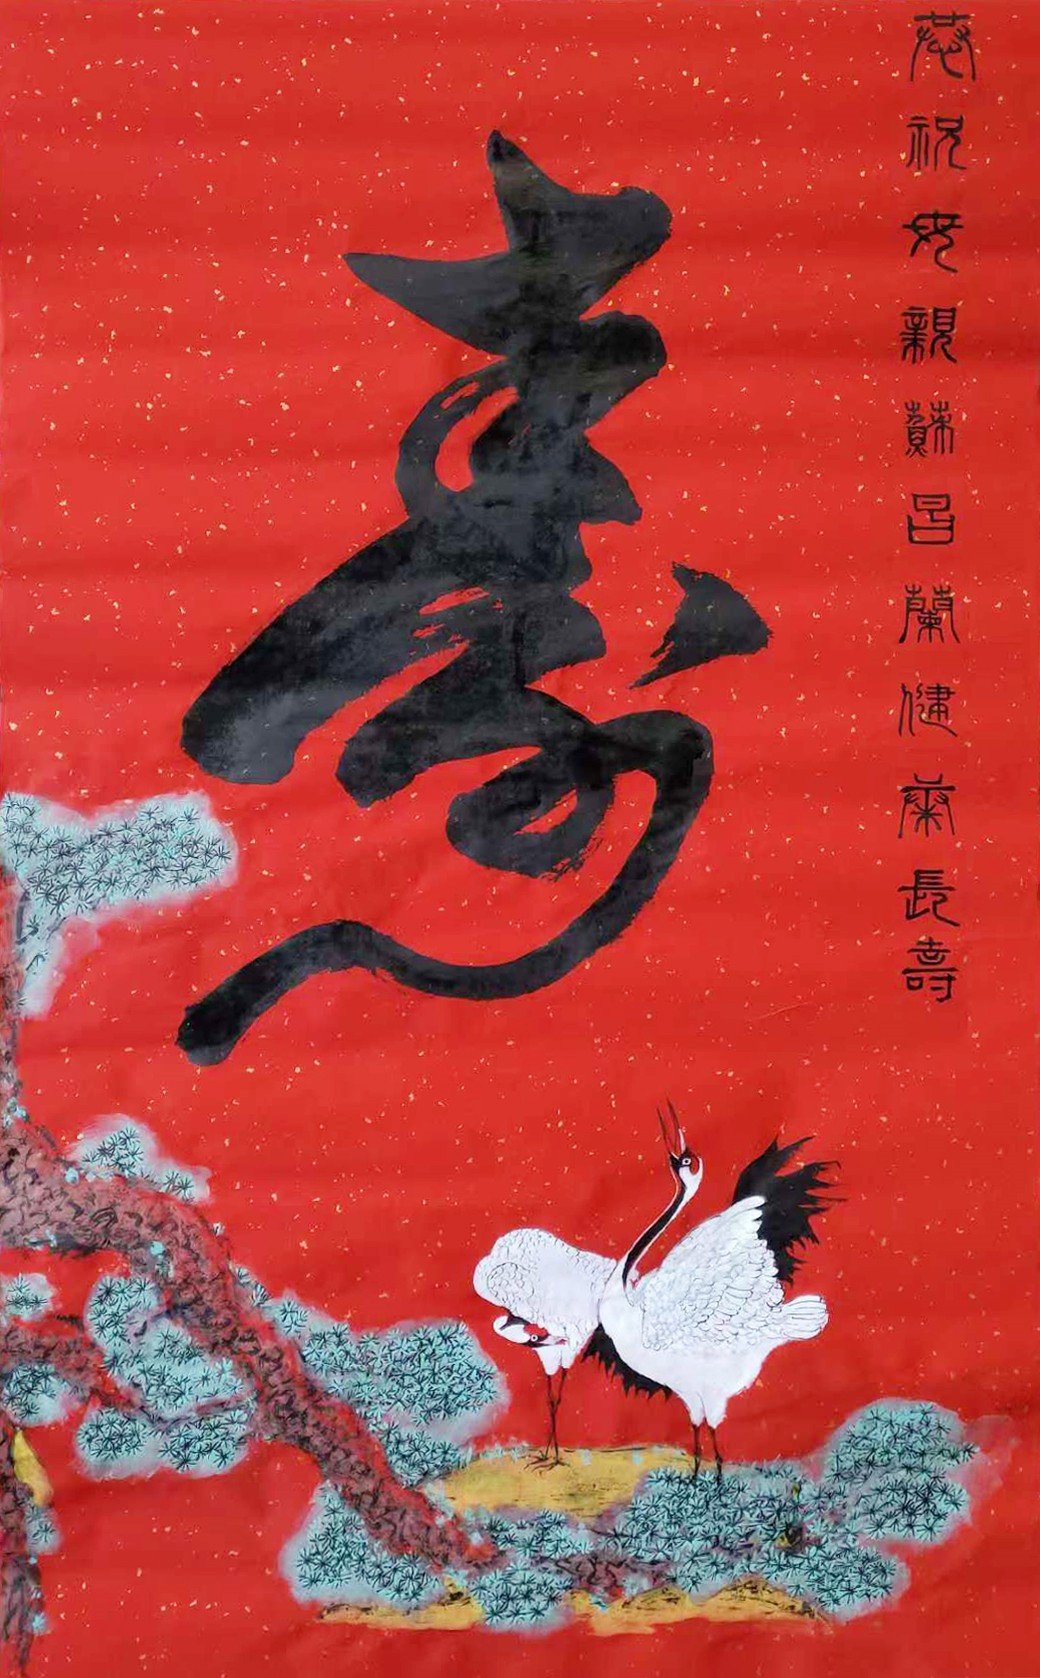 恭祝母親蘇昌蘭健康長壽
壽